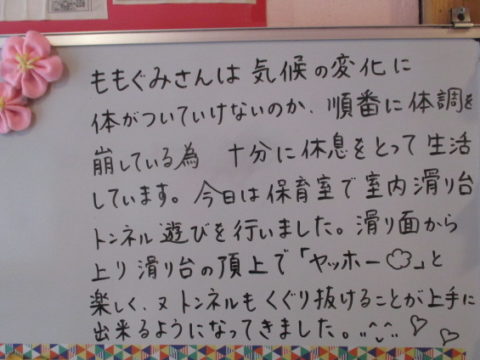 ももぐみさんは気候の変化に
体がついていけないのか、順番に体調を
崩している為 十分に休息をとって生活
しています。今日は保育室で室内滑り台
トンネル遊びを行いました。滑り面から
上り滑り台の頂上で「ヤッホー」と
楽しく、又トンネルもくぐり抜けることが上手に
出来るようになってきました。